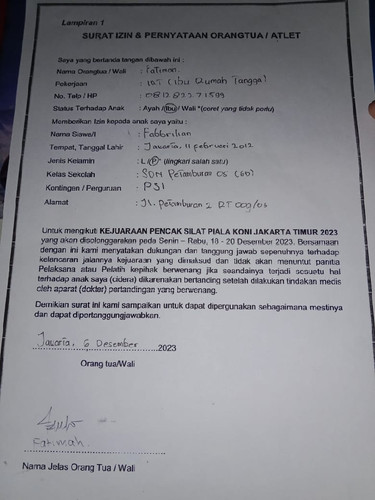 Lampiran 1
SURAT IZIN & PERNYATAAN ORANGTUA / ATLET
Saya yang bertanda tangan dibawah ini :
Nama Orangtua / Wali : Fatimah
Pekerjaan : IRT (Ibu Rumah Tangga)
No. Telp / HP :
Status Terhadap Anak : Ayah / Ibu / Wali *(coret yang tidak perlu)
Memberikan Izin kepada anak saya yaitu :
Nama Saweil : Fabbrilian
Tempat, Tanggal Lahir : Jakarta, 11 Februari 2012
Jenis Kelamin : L / P (lingkari salah satu)
Kelas Sekolah : SDN Petamburan 05 (6D)
Kontingen / Perguruan : PSI
Alamat : Jl. Petamburan 2 RT 009/03
Untuk mengikuti KEJUARAAN PENCAK SILAT PIALA KONI JAKARTA TIMUR 2023
yang akan diselenggarakan pada Senin – Rabu, 18 - 20 Desember 2023. Bersamaan
dengan ini kami menyatakan dukungan dan tanggung jawab sepenuhnya terhadap
kelancaran jalannya kejuaraan yang dimaksud dan tidak akan menuntut panitia
Pelaksana atau Pelatih kepihak berwenang jika seandainya terjadi sesuatu hal
terhadap anak saya (cidera) dikarenakan bertanding setelah dilakukan tindakan medis
oleh aparat (dokter) pertandingan yang berwenang.
Demikian surat ini kami sampaikan untuk dapat dipergunakan sebagaimana mestinya
dan dapat dipertanggungjawabkan.
Jakarta, 6 Desember 2023
Orang tua/Wali
Fatimah.
Nama Jelas Orang Tua / Wali